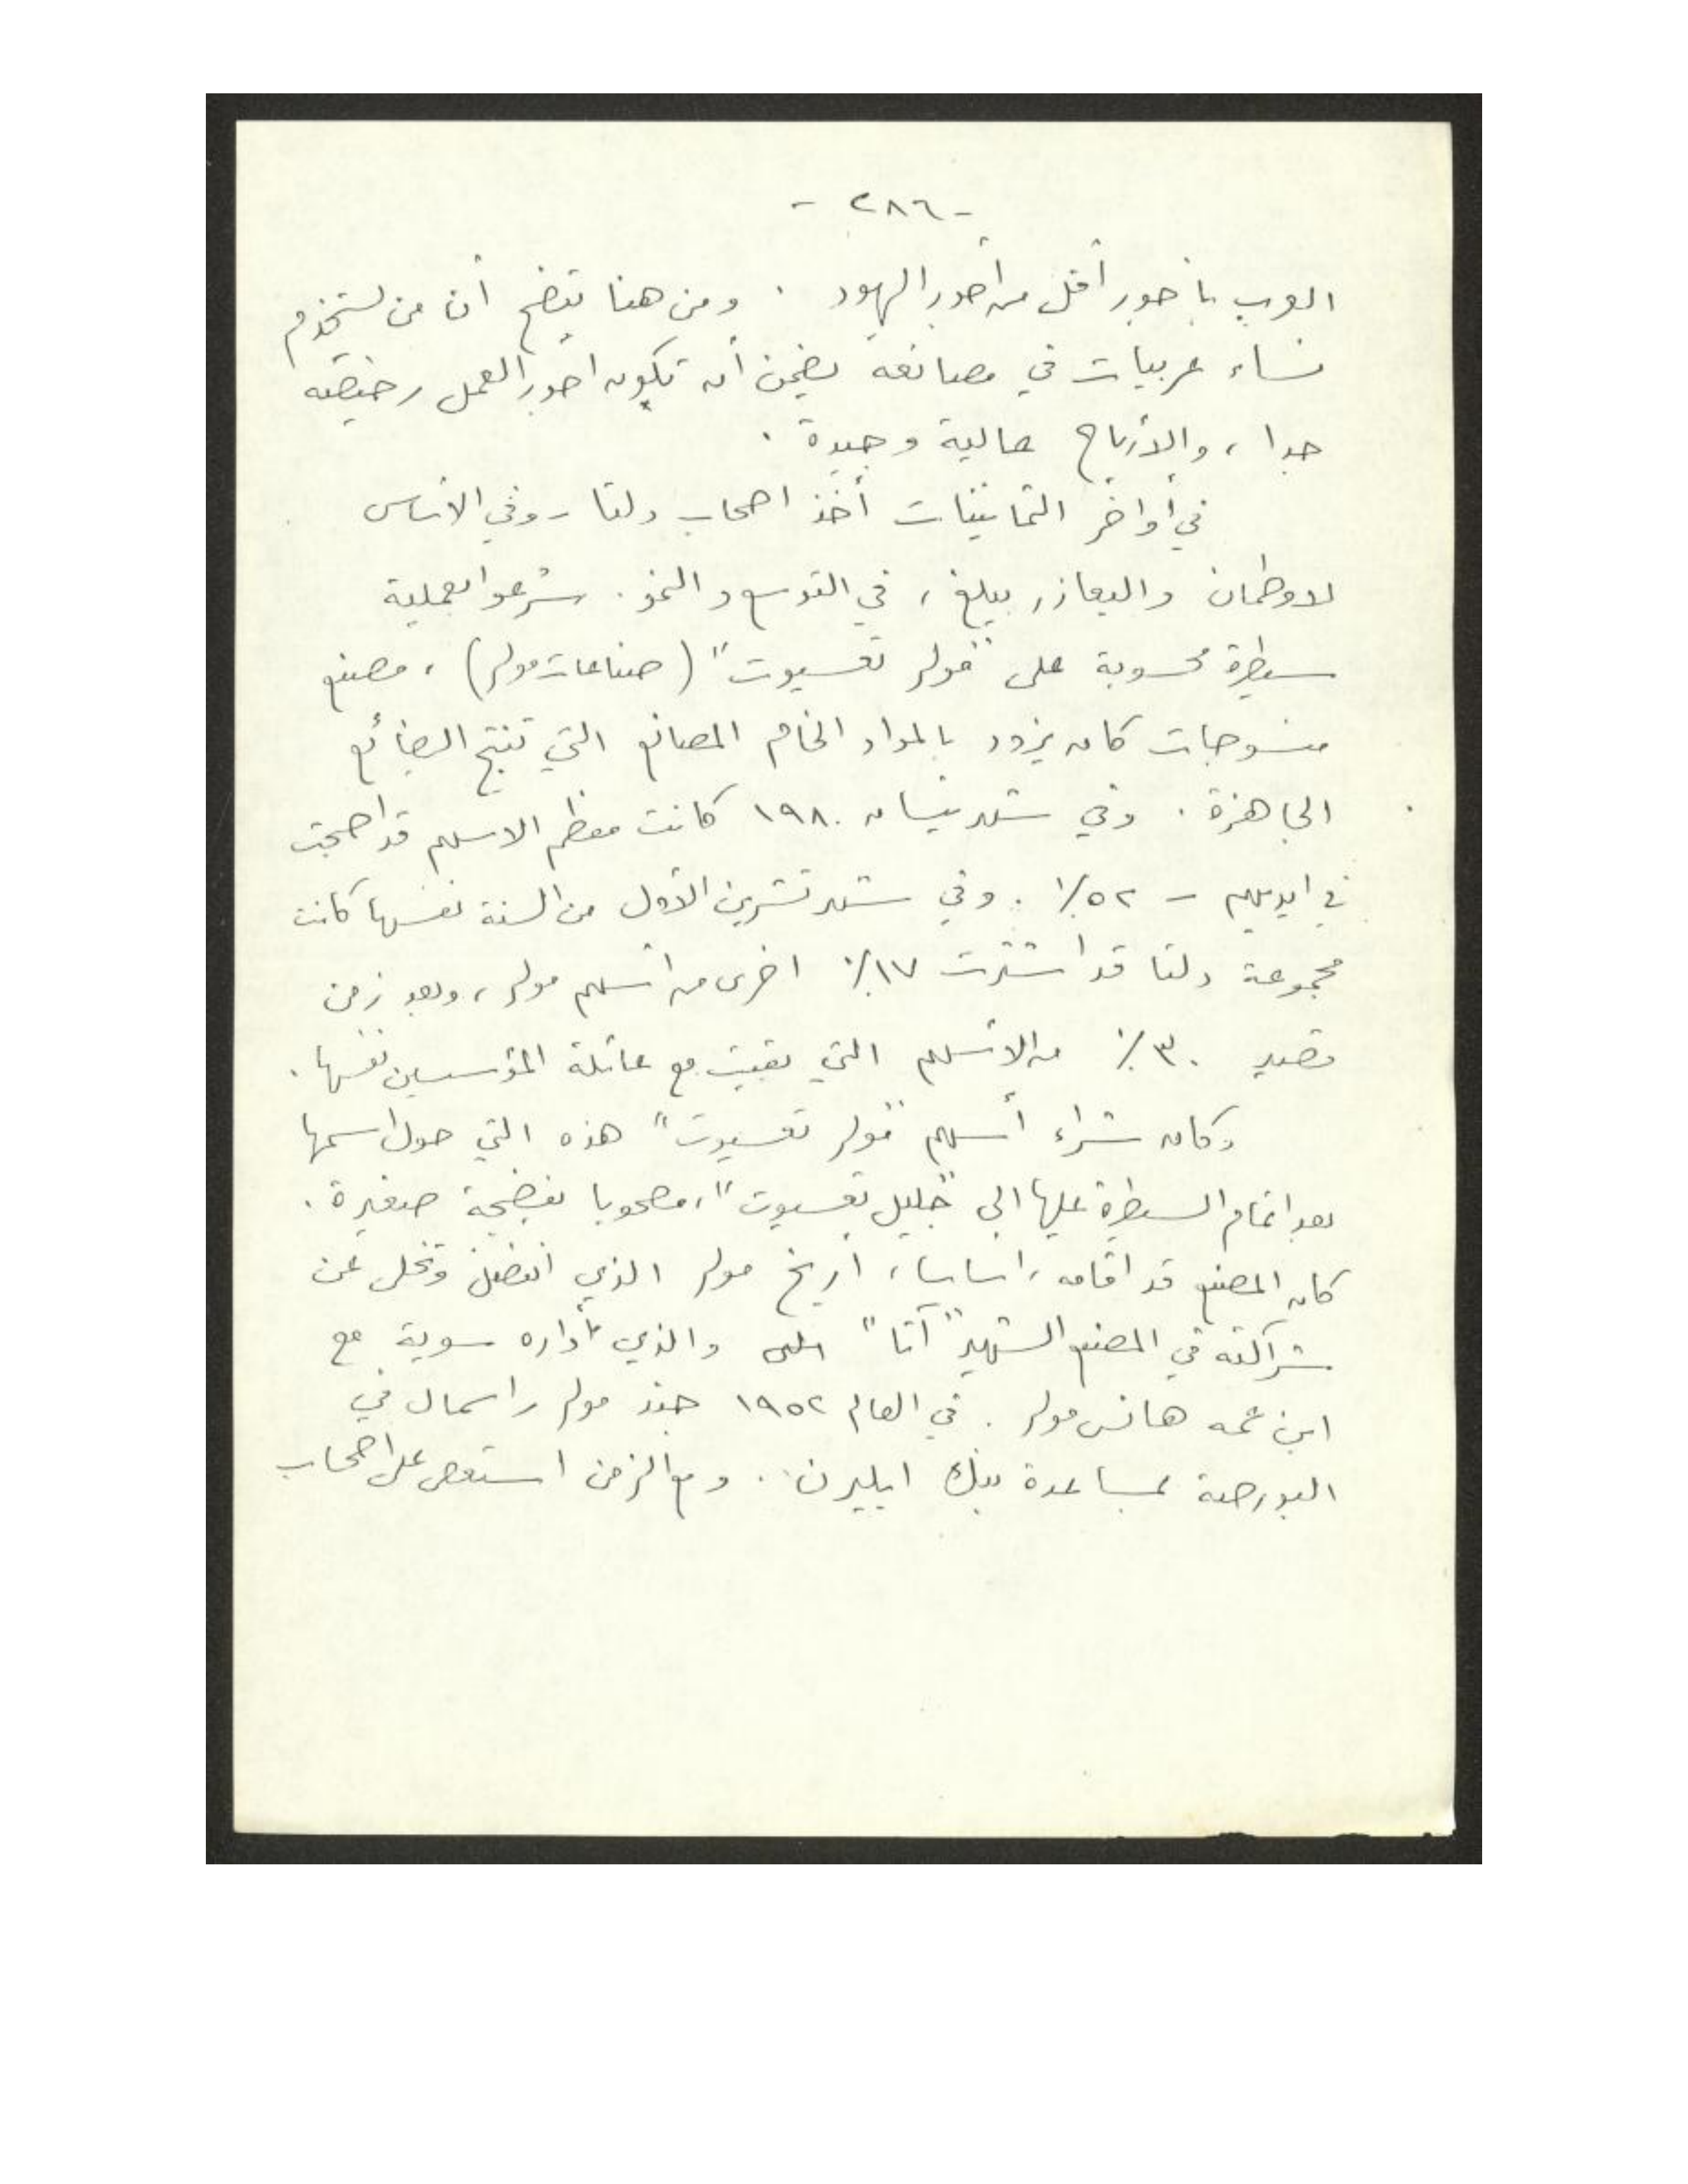 - ٢٨٦ -
العرب بأجور أقل من أجور اليهود . ومن هنا يتضح أن من يستخدم
نساء عربيات في مصانعه يضمن أن تكون أجور العمل رخيصة
جدا ، والأرباح عالية وجيدة .
في أواخر الثمانينات أخذ اصحاب دلتا - وفي الأساس
لاوطمان واليعازر بيلغ ، في التوسع والنمو . شرعوا بعملية
سيطرة محسوبة على "مولر تعسيوت" (صناعات مولر) ، مصنع
منسوجات كان يزود بالمواد الخام المصانع التي تنتج البضائع
الجاهزة . وفي شهر نيسان ١٩٨٠ كانت معظم الاسهم قد اصبحت
في ايديهم - ٥٢٪ . وفي شهر تشرين الأول من السنة نفسها كانت
مجموعة دلتا قد اشترت ١٧٪ اخرى من أسهم مولر ، وبعد زمن
قصير ٣٠٪ من الأسهم التي بقيت مع عائلة المؤسسين نفسها .
وكان شراء أسهم "مولر تعسيوت" هذه التي حول اسمها
بعد اتمام السيطرة عليها الى "جليل تعسيوت" ، مصحوبا بفضيحة صغيرة .
كان المصنع قد اقامه ، اساسا ، أريخ مولر الذي انفصل وتخلى عن
شراكته في المصنع الشهير "آتا" والذي أداره سوية مع
ابن عمه هانس مولر . في العام ١٩٥٢ جند مولر رأسمال في
البورصة بمساعدة بنك ايليرن . ومع الزمن استعصى على اصحاب